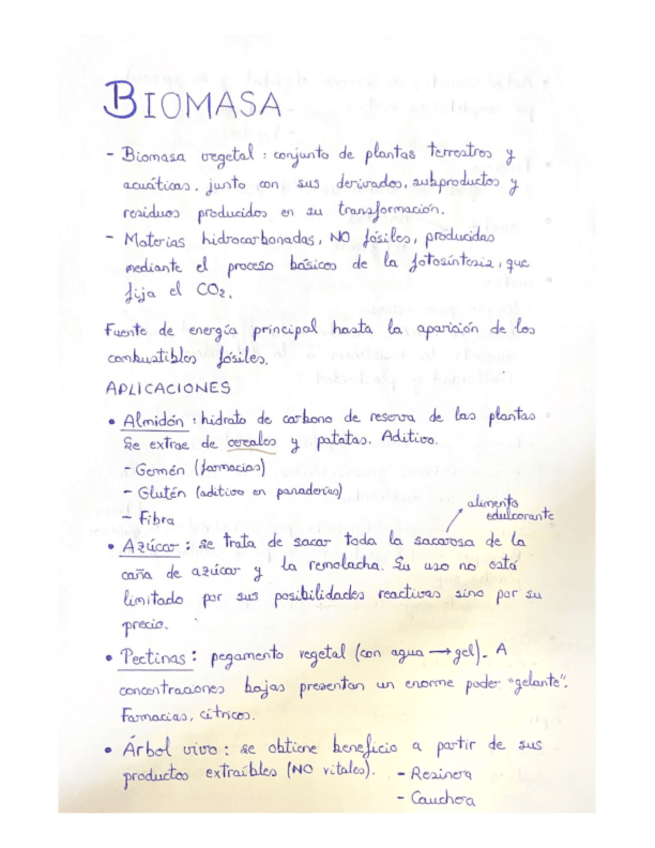 BIOMASA
- Biomasa vegetal : conjunto de plantas terrestres y
acuáticas, junto con sus derivados, subproductos y
residuos producidos en su transformación.
- Materias hidrocarbonadas, NO fósiles, producidas
mediante el proceso básicos de la fotosíntesis, que
fija el CO₂.
Fuente de energía principal hasta la aparición de los
combustibles fósiles.
APLICACIONES
• Almidón : hidrato de carbono de reserva de las plantas
Se extrae de cereales y patatas. Aditivo.
- Germén (farmacias)
- Glutén (aditivo en panaderías)
- Fibra
alimento
edulcorante
• Azúcar : se trata de sacar toda la sacarosa de la
caña de azúcar y la remolacha. Su uso no está
limitado por sus posibilidades reactivas sino por su
precio.
• Pectinas : pegamento vegetal (con agua → gel). A
concentraciones bajas presentan un enorme poder "gelante".
Farmacias, cítricos.
• Árbol vivo : se obtiene beneficio a partir de sus
productos extraíbles (NO vitales). - Resinera
- Cauchera